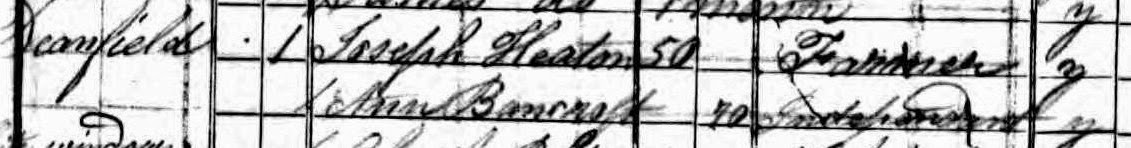 Deanfield 1 Joseph Heaton 50 Farmer y
Ann Bancroft 70 Independent y